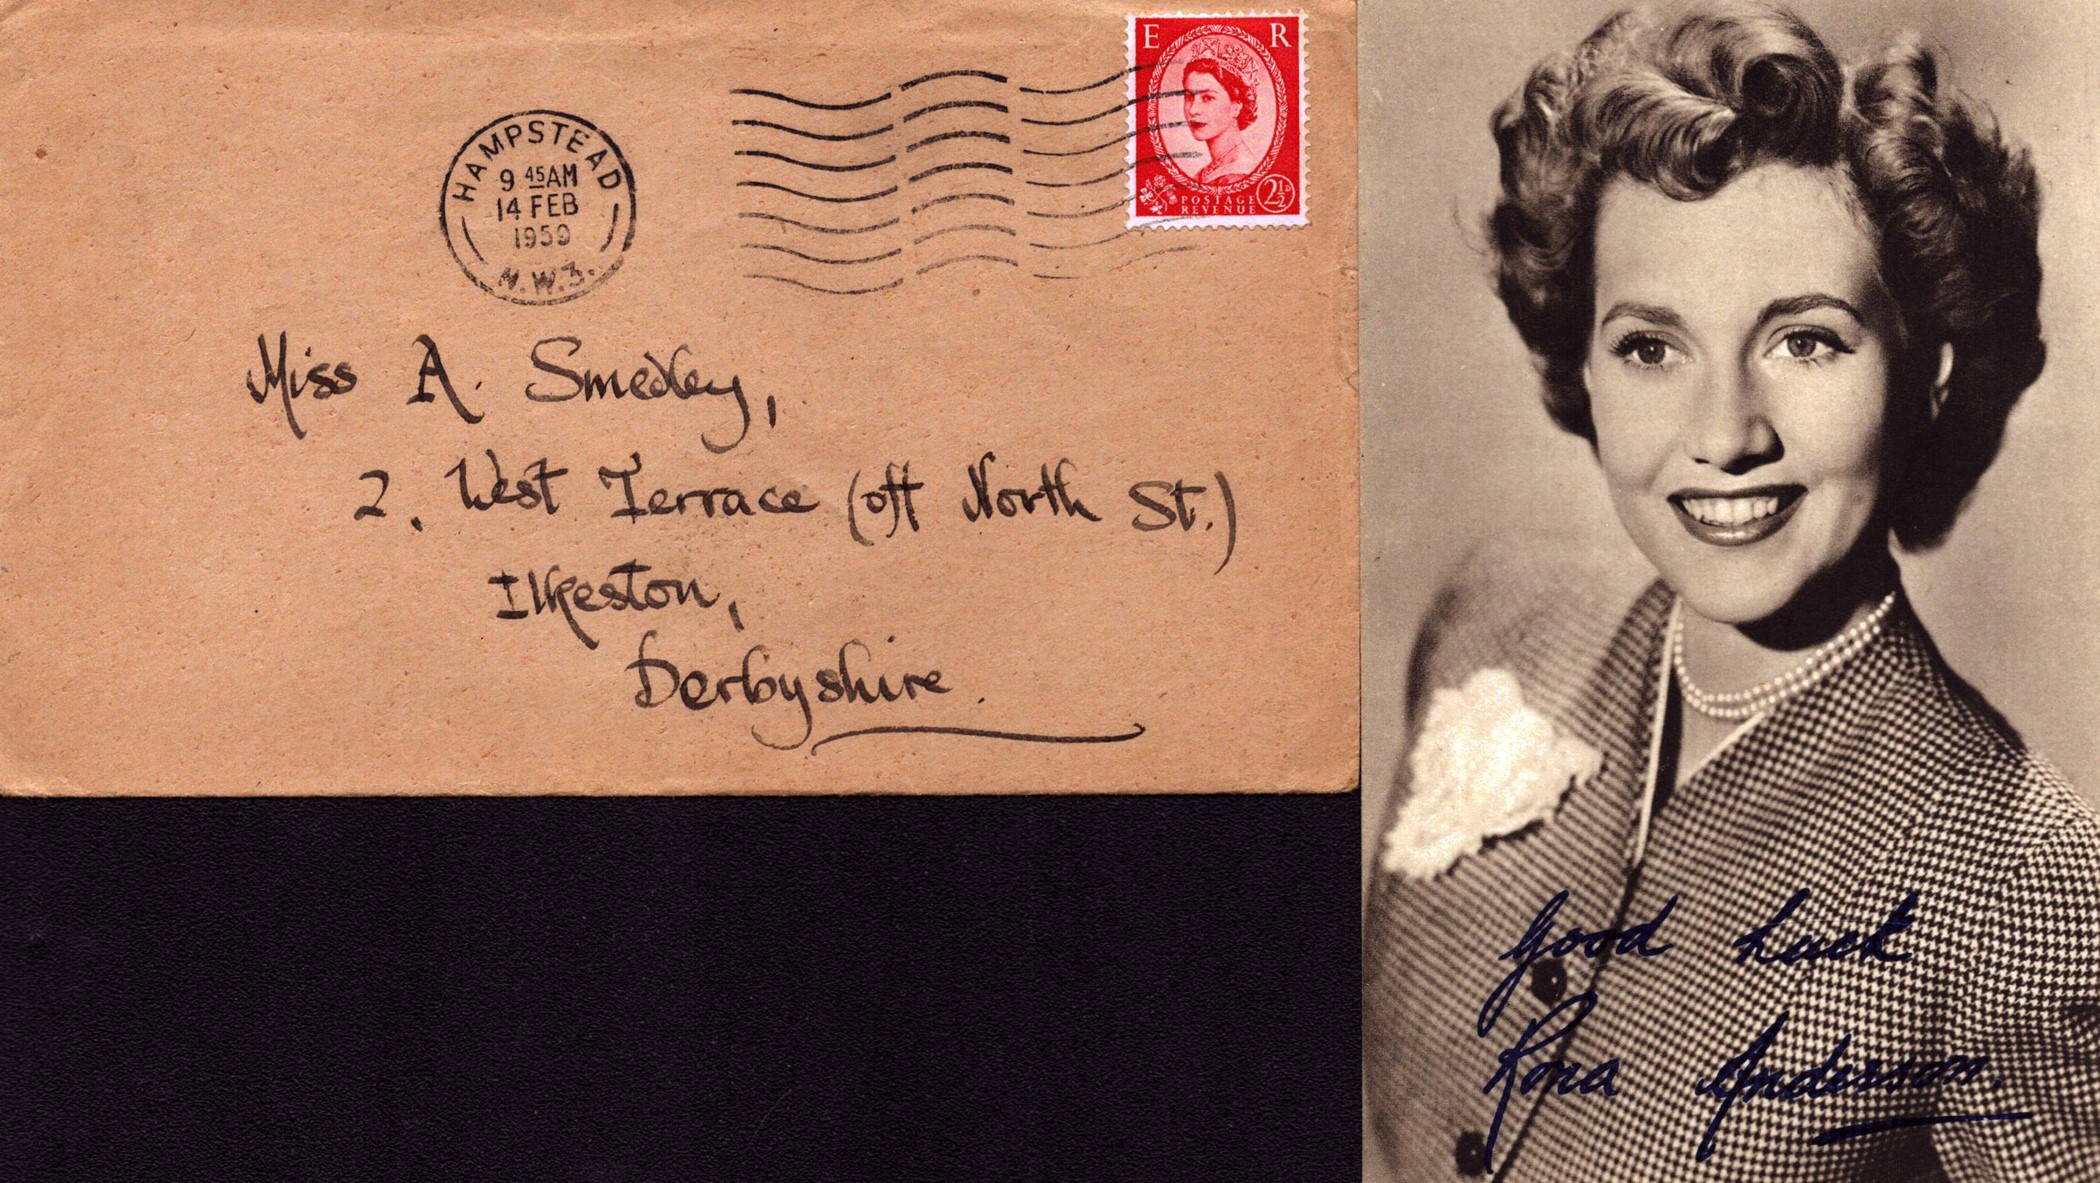 HAMPSTEAD
9 45AM
14 FEB
1959
N.W.3.
E R
POSTAGE
REVENUE
2½D
Miss A. Smedley,
2, West Terrace (off North St.)
Ilkeston,
Derbyshire.
Good Luck
Rona Anderson.